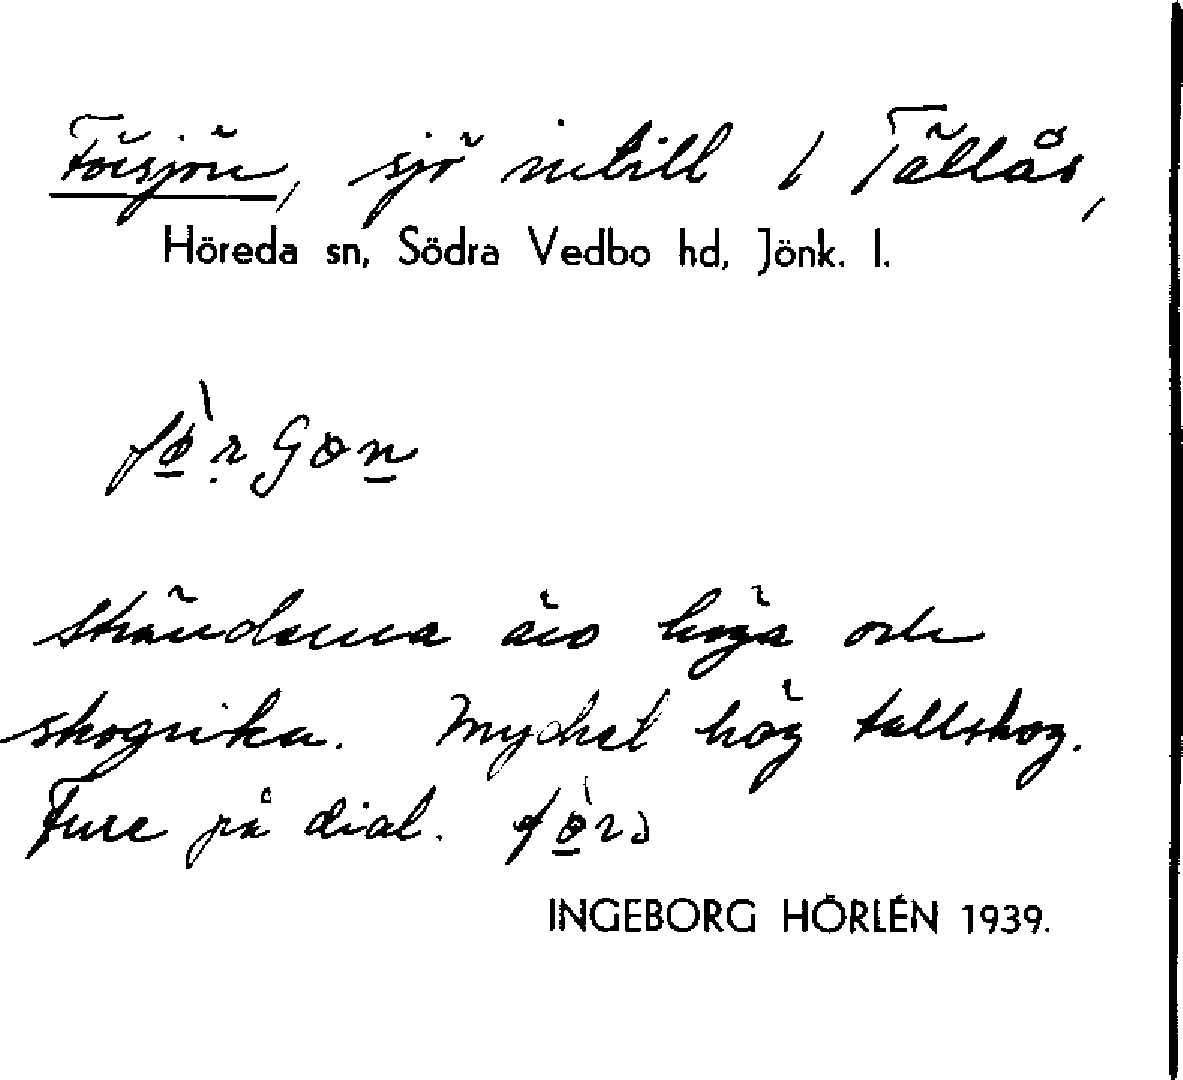 Försjön, sjö intill 1 Tällås,
Höreda sn, Södra Vedbo hd, Jönk. l.
Stränderna äro höga och
skogrika. Mycket hög tallskog.
Fure på dial.
INGEBORG HÖRLÉN 1939.